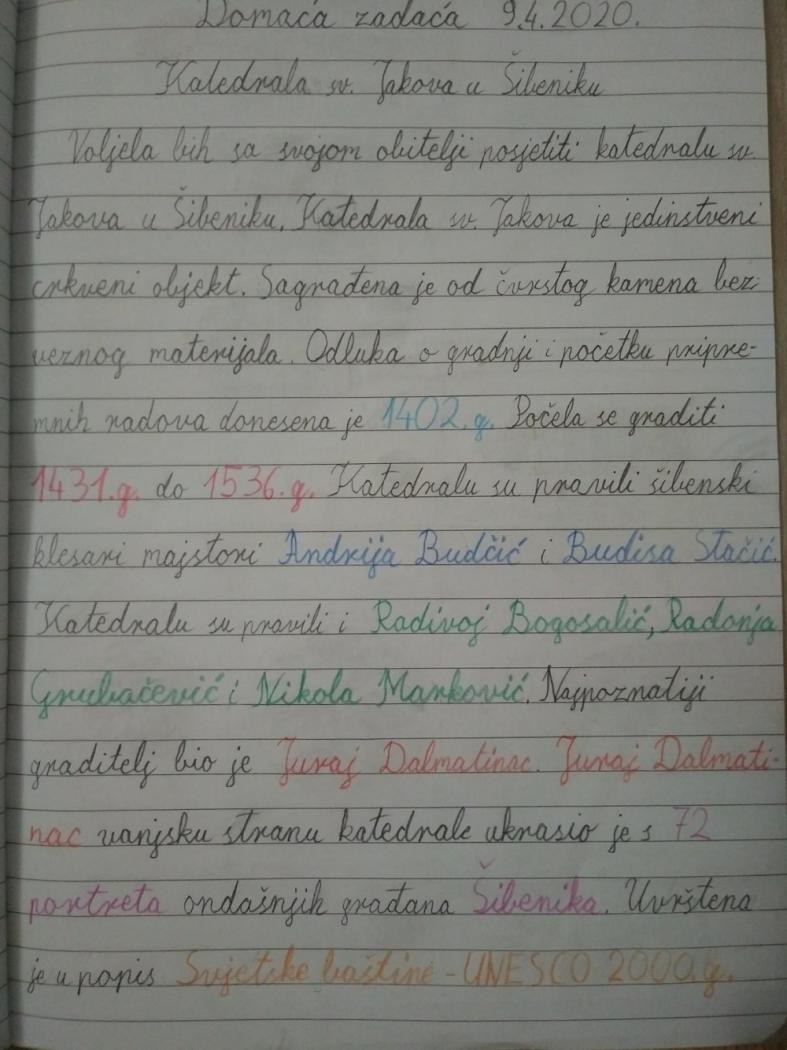 Domaća zadaća 9.4.2020.
Katedrala sv. Jakova u Šibeniku
Voljela bih sa svojom obitelji posjetiti katedralu sv.
Jakova u Šibeniku. Katedrala sv. Jakova je jedinstveni
crkveni objekt. Sagrađena je od čvrstog kamena bez
veznog materijala. Odluka o gradnji i početku pripre-
mnih radova donesena je 1402.g. Počela se graditi
1431.g. do 1536.g. Katedralu su pravili šibenski
klesari majstori Andrija Budčić i Budisa Stačić.
Katedralu su pravili i Radivoj Bogosalić, Radonja
Grubačević i Nikola Marković. Najpoznatiji
graditelj bio je Juraj Dalmatinac. Juraj Dalmati-
nac vanjsku stranu katedrale ukrasio je s 72
portreta ondašnjih građana Šibenika. Uvrštena
je u popis Svjetske baštine - UNESCO 2000.g.